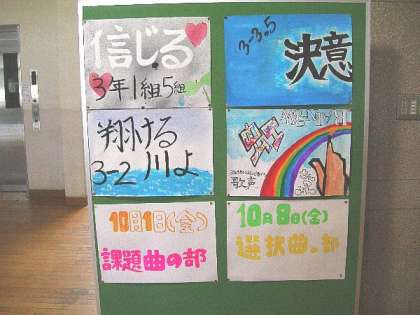 信じる
3年1組5組
3-3.5
決意
翔ける
川よ
3-2
虹
歌声
10月1日(金)
課題曲の部
10月8日(金)
選択曲の部